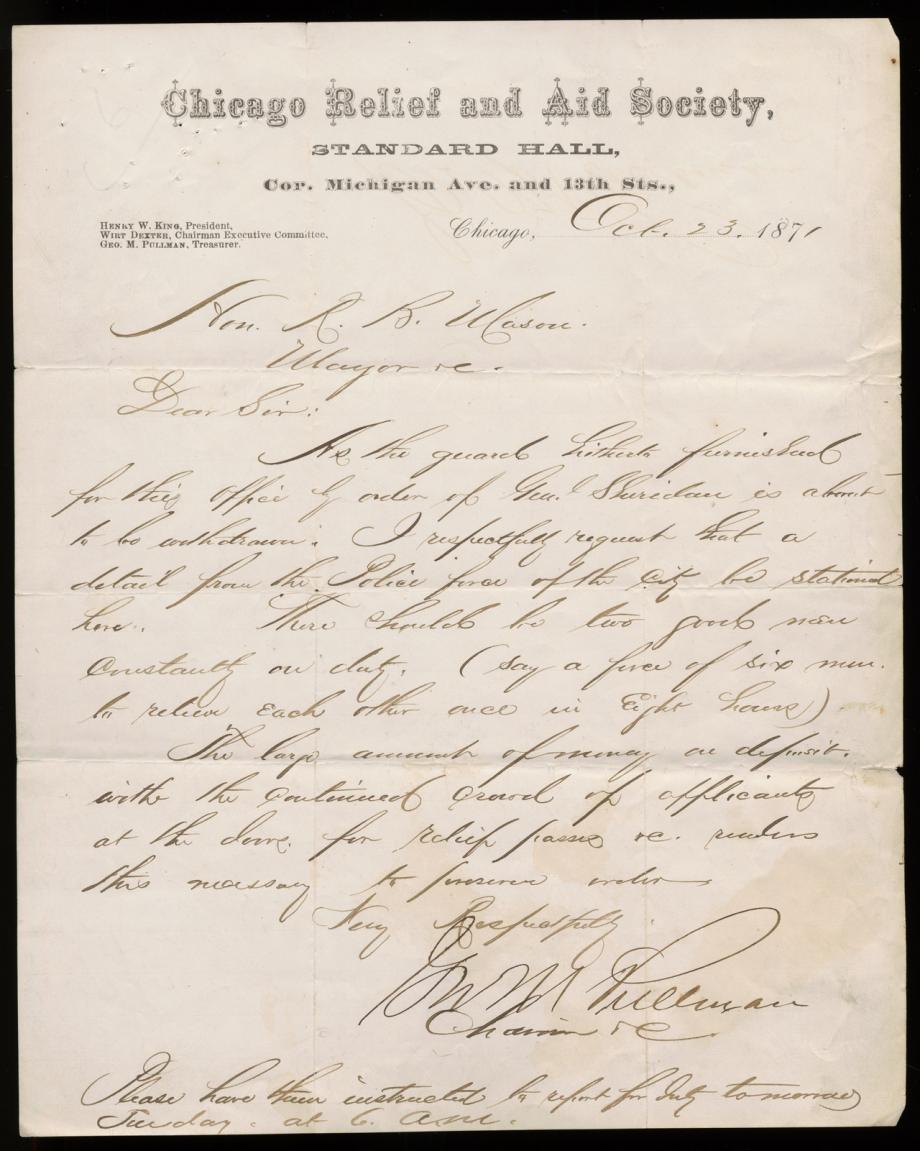 Chicago Relief and Aid Society,
STANDARD HALL,
Cor. Michigan Ave. and 13th Sts.,
HENRY W. KING, President,
WIRT DEXTER, Chairman Executive Committee,
GEO. M. PULLMAN, Treasurer.
Chicago, Oct. 23. 1871
Hon. R. B. Mason.
Mayor &c.
Dear Sir:
As the guard hitherto furnished
for this office by order of Genl Sheridan is about
to be withdrawn. I respectfully request that a
detail from the Police force of the City be stationed
here. There should be two good men
constantly on duty. (say a force of six men.
to relieve each other once in Eight hours)
The large amount of money on deposit.
with the continued crowd of applicants
at the doors. for relief passes &c. renders
this necessary to preserve order
Very Respectfully
Geo M Pullman
Chairman &c
Please have them instructed to report for duty tomorrow
Tuesday. at 6. A.M.